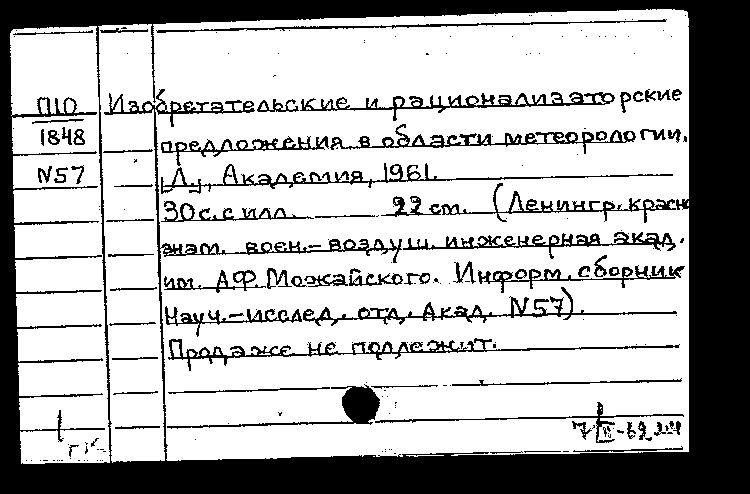 П10 Изобретательские и рационализаторские
1848 предложения в области метеорологии.
N57 [Л.], Академия, 1961.
30 с. с илл. 22 cm. (Ленингр. красно
знам. воен.-воздуш. инженерная акад.
им. А.Ф. Можайского. Информ. сборник
Науч.-исслед. отд. Акад. N57).
Продаже не подлежит.